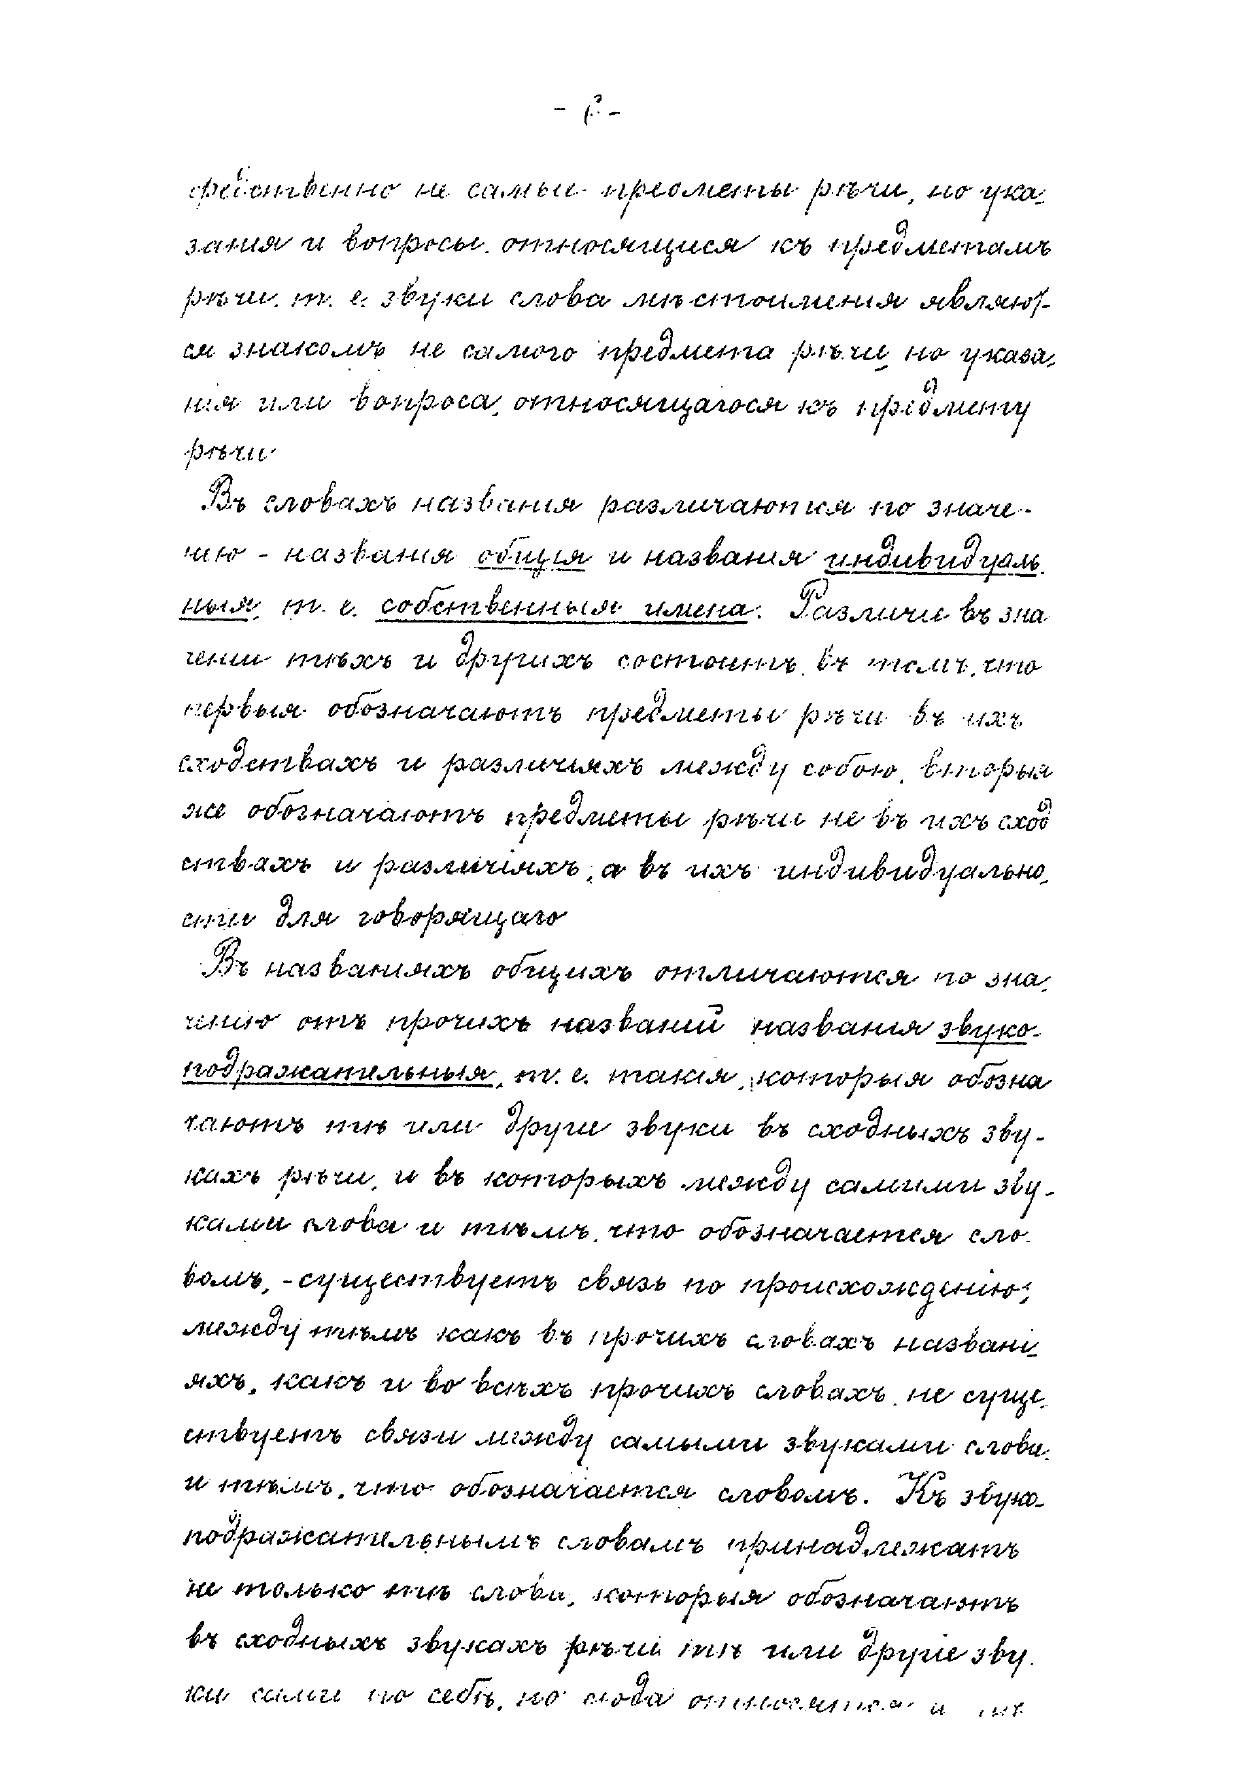 средственно не самые предметы рѣчи, но ука-
зания и вопросы, относящиеся къ предметамъ
рѣчи, т. е. звуки слова мѣстоимения являют-
ся знакомъ не самого предмета рѣчи, но указа-
нія или вопроса, относящагося къ предмету
рѣчи.
Въ словахъ названия различаются по значе-
нию - названия общия и названия индивидуаль-
ныя, т. е. собственныя имена. Различие въ зна
чении тѣхъ и другихъ состоитъ въ томъ, что
первыя обозначаютъ предметы рѣчи въ ихъ
сходствахъ и различияхъ между собою, вторыя
же обозначаютъ предметы рѣчи не въ ихъ сход
ствахъ и различіяхъ, а въ ихъ индивидуально-
сти для говорящаго
Въ названияхъ общихъ отличаются по зна-
чению отъ прочихъ названий названия звуко-
подражательныя, т. е. такия, которыя обозна
чаютъ тѣ или другие звуки въ сходныхъ зву-
кахъ рѣчи, и въ которыхъ между самими зву-
ками слова и тѣмъ, что обозначается сло-
вомъ, - существуетъ связь по происхожденію;
между тѣмъ какъ въ прочихъ словахъ названі-
яхъ, какъ и во всѣхъ прочихъ словахъ, не суще-
ствуетъ связи между самыми звуками слова
и тѣмъ, что обозначается словомъ. Къ звуко-
подражательнымъ словамъ принадлежатъ
не только тѣ слова, которыя обозначаютъ
въ сходныхъ звукахъ рѣчи тѣ или другіе зву-
ки сами по себѣ, но сюда относятся и тѣ